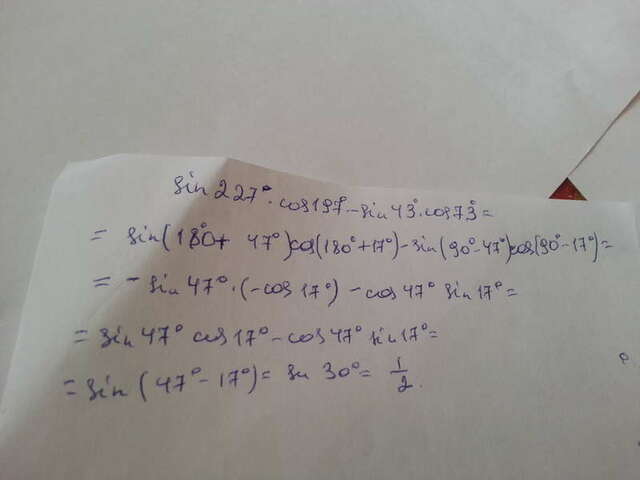 sin 227° · cos 197° - sin 43° · cos 73° =
= sin(180° + 47°) cos(180° + 17°) - sin(90° - 47°) cos(90° - 17°) =
= - sin 47° · (-cos 17°) - cos 47° sin 17° =
= sin 47° cos 17° - cos 47° sin 17° =
= sin (47° - 17°) = sin 30° = 1/2.